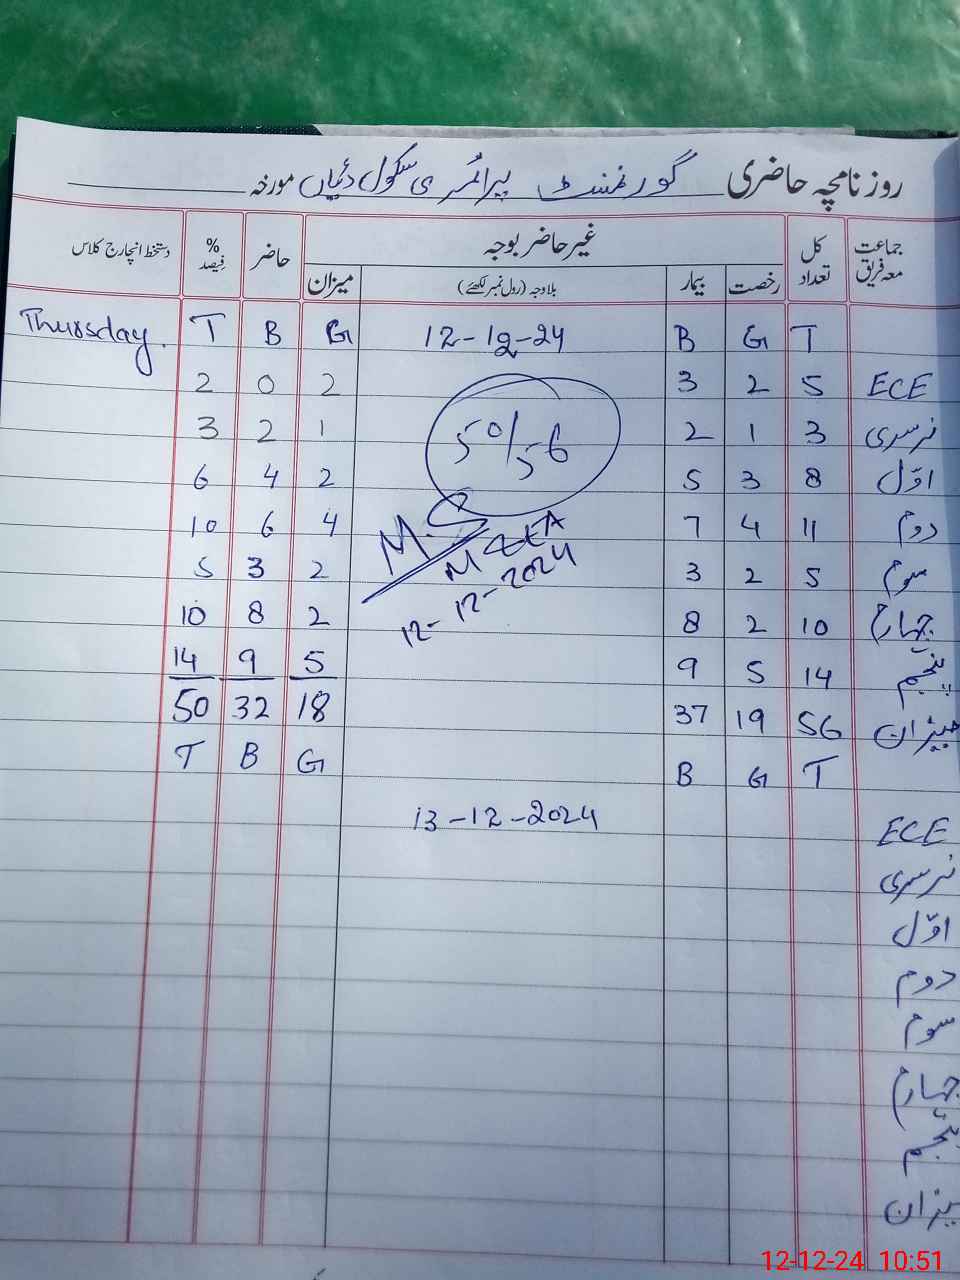 روزنامچہ حاضری گورنمنٹ پرائمری سکول دئیاں مورخہ
جماعت معہ فریق کل تعداد غیر حاضر بوجہ حاضر % فیصد دستخط انچارج کلاس
رخصت بیمار بلاوجہ (رول نمبر لکھئے) میزان
T G B 12-12-24 G B T Thursday.
ECE 5 2 3 2 0 2
نرسری 3 1 2 1 2 3
اوّل 8 3 5 2 4 6
دوم 11 4 7 4 6 10
سوم 5 2 3 2 3 5
چہارم 10 2 8 2 8 10
پنجم 14 5 9 5 9 14
میزان 56 19 37 18 32 50
50/56
M.S
MEA
12-12-2024
T G B G B T
13-12-2024
ECE
نرسری
اوّل
دوم
سوم
چہارم
پنجم
میزان
12-12-24 10:51